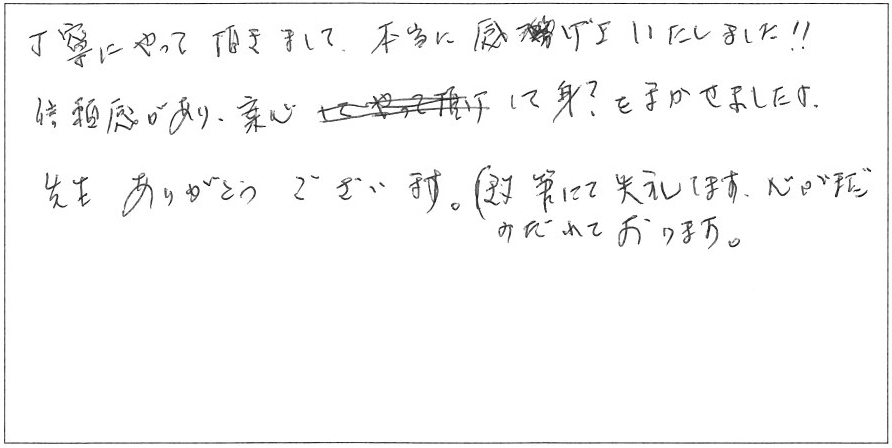 丁寧にやって頂きまして、本当に感激いたしました!!
信頼感があり、安心して身?をまかせましたよ。
先生ありがとうございます。(乱筆にて失礼します、心がまだ
みだれております。